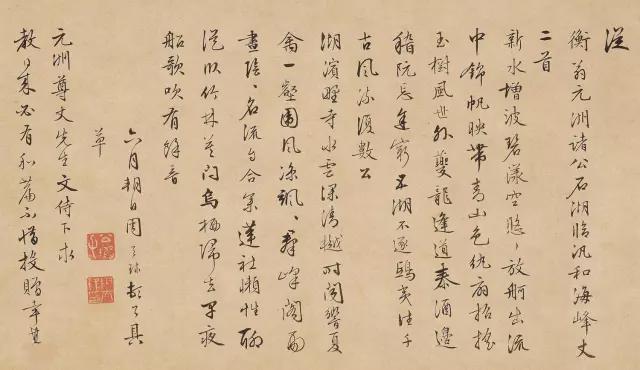 從
衡翁元洲諸公石湖臨汎和海峰丈
二首
新水增波碧漾空隱隱放舸出流
中錦帆映帶青山色紈扇招搖
玉樹風世外夔龍逢道泰酒邊
嵇阮忘途窮五湖不逐鴟夷法千
古風流復數公
湖濱野寺水雲深清樾時聞響夏
禽一壑圍風涼颯颯群峰閣雨
晝陰陰名流自合累蓮社懶性聊
從似竹林草門烏栖歸去早夜
船歌吹有餘音
六月朔日周天球頓首具
草
元洲尊丈先生文侍下求
教 必有和篇不惜投贈幸甚